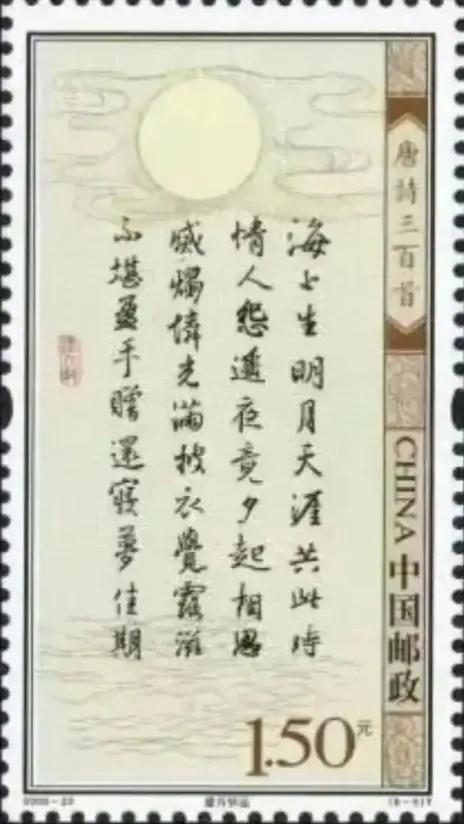 唐詩三百首
海上生明月天涯共此時
情人怨遥夜竟夕起相思
滅燭憐光滿披衣覺露滋
不堪盈手贈還寢夢佳期
CHINA 中国邮政
1.50元